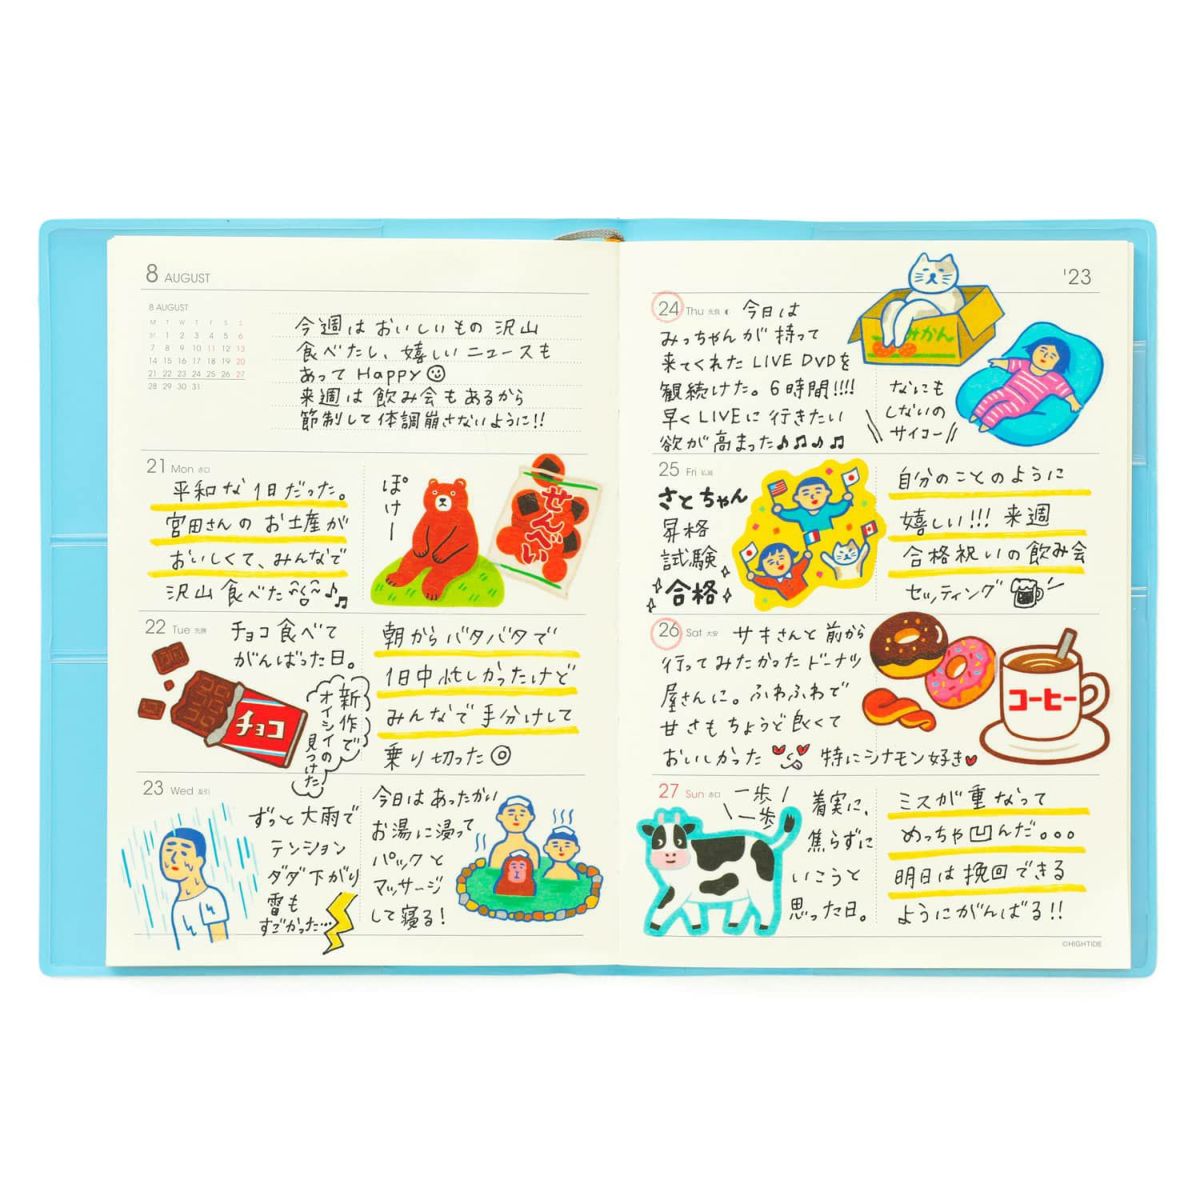 8 AUGUST
8 AUGUST
M T W T F S S
31 1 2 3 4 5 6
7 8 9 10 11 12 13
14 15 16 17 18 19 20
21 22 23 24 25 26 27
28 29 30 31
今週はおいしいもの沢山
食べたし、嬉しいニュースも
あってHappy
来週は飲み会もあるから
節制して体調崩さないように!!
21 Mon 赤口
平和な1日だった。
宮田さんのお土産が
おいしくて、みんなで
沢山食べた
ぽけー
せんべい
22 Tue 先勝
チョコ食べて
がんばった日。
チョコ
新作で
オイシイの
見つけた
朝からバタバタで
1日中忙しかったけど
みんなで手分けして
乗り切った◎
23 Wed 友引
ずっと大雨で
テンション
ダダ下がり
雷も
すごかった…
今日はあったかい
お湯に浸って
パックと
マッサージ
して寝る!
'23
24 Thu 先負
今日は
みっちゃんが持って
来てくれたLIVE DVDを
観続けた。6時間!!!!
早くLIVEに行きたい
欲が高まった♪♫♪♫
みかん
なにも
しないの
サイコー
25 Fri 仏滅
さとちゃん
昇格
試験
合格
自分のことのように
嬉しい!!! 来週
合格祝いの飲み会
セッティング
26 Sat 大安
サキさんと前から
行ってみたかったドーナツ
屋さんに。ふわふわで
甘さもちょうど良くて
おいしかった 特にシナモン好き
コーヒー
27 Sun 赤口
一歩
一歩
着実に、
焦らずに
いこうと
思った日。
ミスが重なって
めっちゃ凹んだ。。。
明日は挽回できる
ようにがんばる!!
©HIGHTIDE